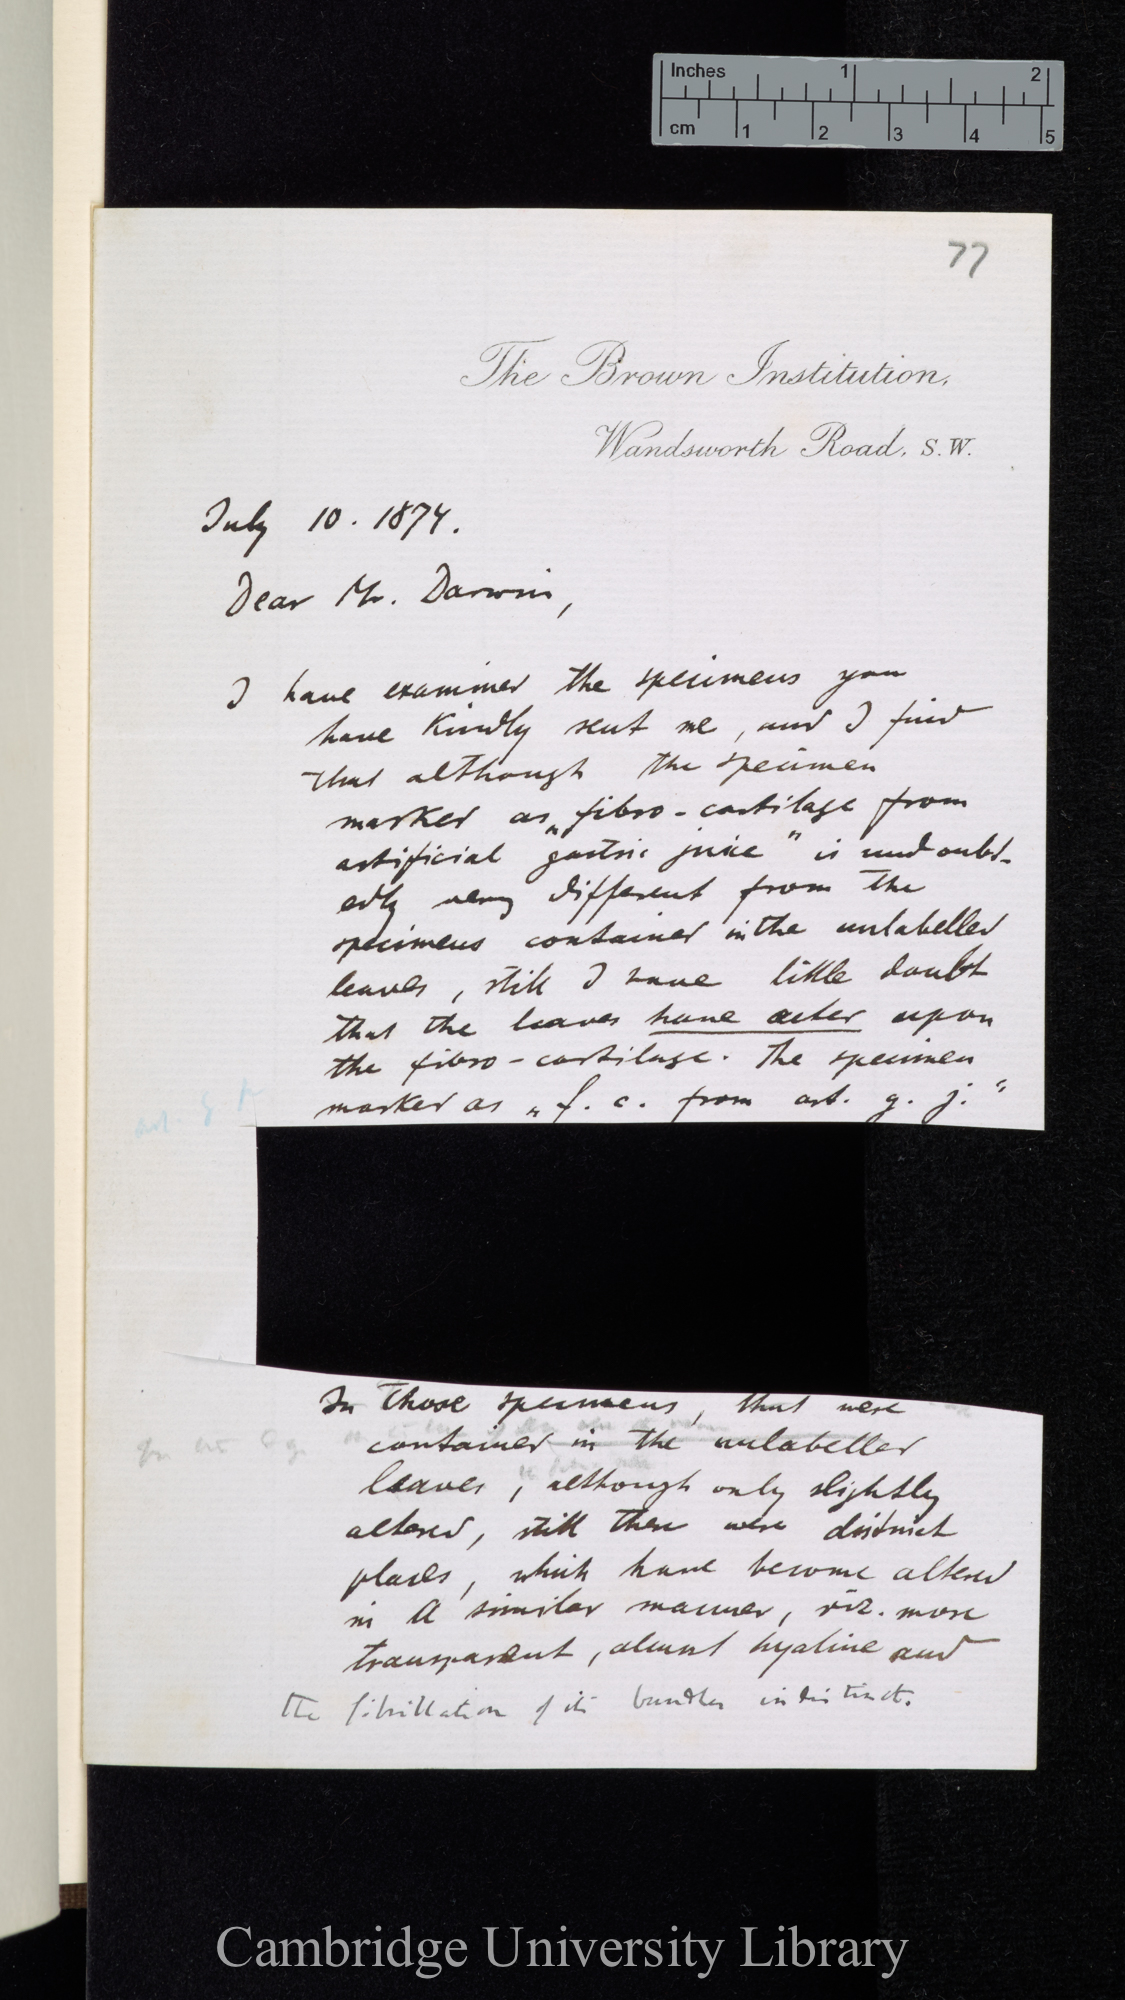 Inches 1 2
cm 1 2 3 4 5
77
The Brown Institution,
Wandsworth Road. S.W.
July 10. 1874.
Dear Mr. Darwin,
I have examined the specimens you
have kindly sent me, and I find
that although the specimen
marked as „fibro-cartilage from
artificial gastric juice" is undoubt-
edly very different from the
specimens contained in the unlabelled
leaves, still I have little doubt
that the leaves have acted upon
the fibro-cartilage. The specimen
marked as „f. c. from art. g. j."
art. g
In those specimens, that were
contained in the unlabelled
leaves, although only slightly
altered, still there were distinct
places, which have become altered
in a similar manner, viz. more
transparent, almost hyaline and
the fibrillation of its bundles indistinct.
Cambridge University Library